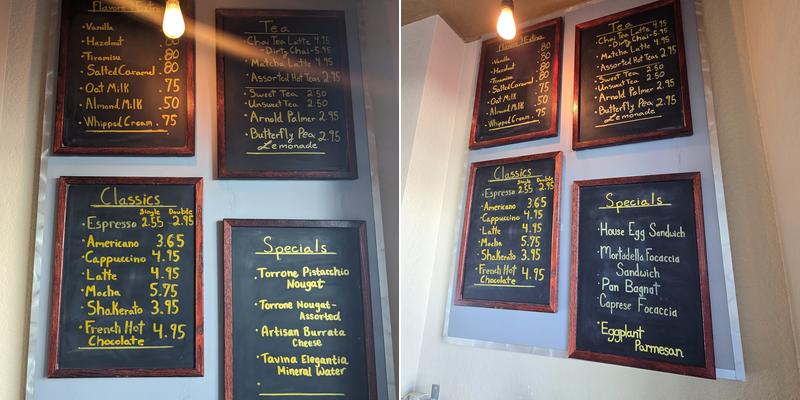 Flavors & Extra
• Vanilla .80
• Hazelnut .80
• Tiramisu .80
• Salted Caramel .80
• Oat Milk .75
• Almond Milk .50
• Whipped Cream .75
Tea
• Chai Tea Latte 4.95
- Dirty Chai - 5.95
• Matcha Latte 4.95
• Assorted Hot Teas 2.95
• Sweet Tea 2.50
• Unsweet Tea 2.50
• Arnold Palmer 2.95
• Butterfly Pea 2.95
Lemonade
Classics
Single Double
• Espresso 2.55 2.95
• Americano 3.65
• Cappuccino 4.75
• Latte 4.75
• Mocha 5.75
• Shakerato 3.95
• French Hot 4.95
Chocolate
Specials
• Torrone Pistacchio
Nougat
• Torrone Nougat -
Assorted
• Artisan Burrata
Cheese
• Tavina Elegantia
Mineral Water
Flavors & Extra
• Vanilla .80
• Hazelnut .80
• Tiramisu .80
• Salted Caramel .80
• Oat Milk .75
• Almond Milk .50
• Whipped Cream .75
Tea
• Chai Tea Latte 4.95
- Dirty Chai - 5.95
• Matcha Latte 4.95
• Assorted Hot Teas 2.95
• Sweet Tea 2.50
• Unsweet Tea 2.50
• Arnold Palmer 2.95
• Butterfly Pea 2.95
Lemonade
Classics
Single Double
• Espresso 2.55 2.95
• Americano 3.65
• Cappuccino 4.75
• Latte 4.75
• Mocha 5.75
• Shakerato 3.95
• French Hot 4.95
Chocolate
Specials
• House Egg Sandwich
• Mortadella Focaccia
Sandwich
• Pan Bagnat
• Caprese Focaccia
• Eggplant
Parmesan